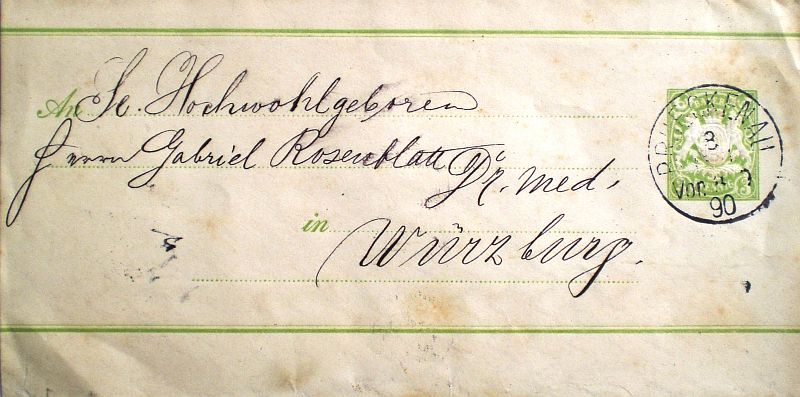 An Se Hochwohlgeboren
Herrn Gabriel Rosenblatt Dr. med.
in Würzburg.
BRUECKENAU
8
VOR
90